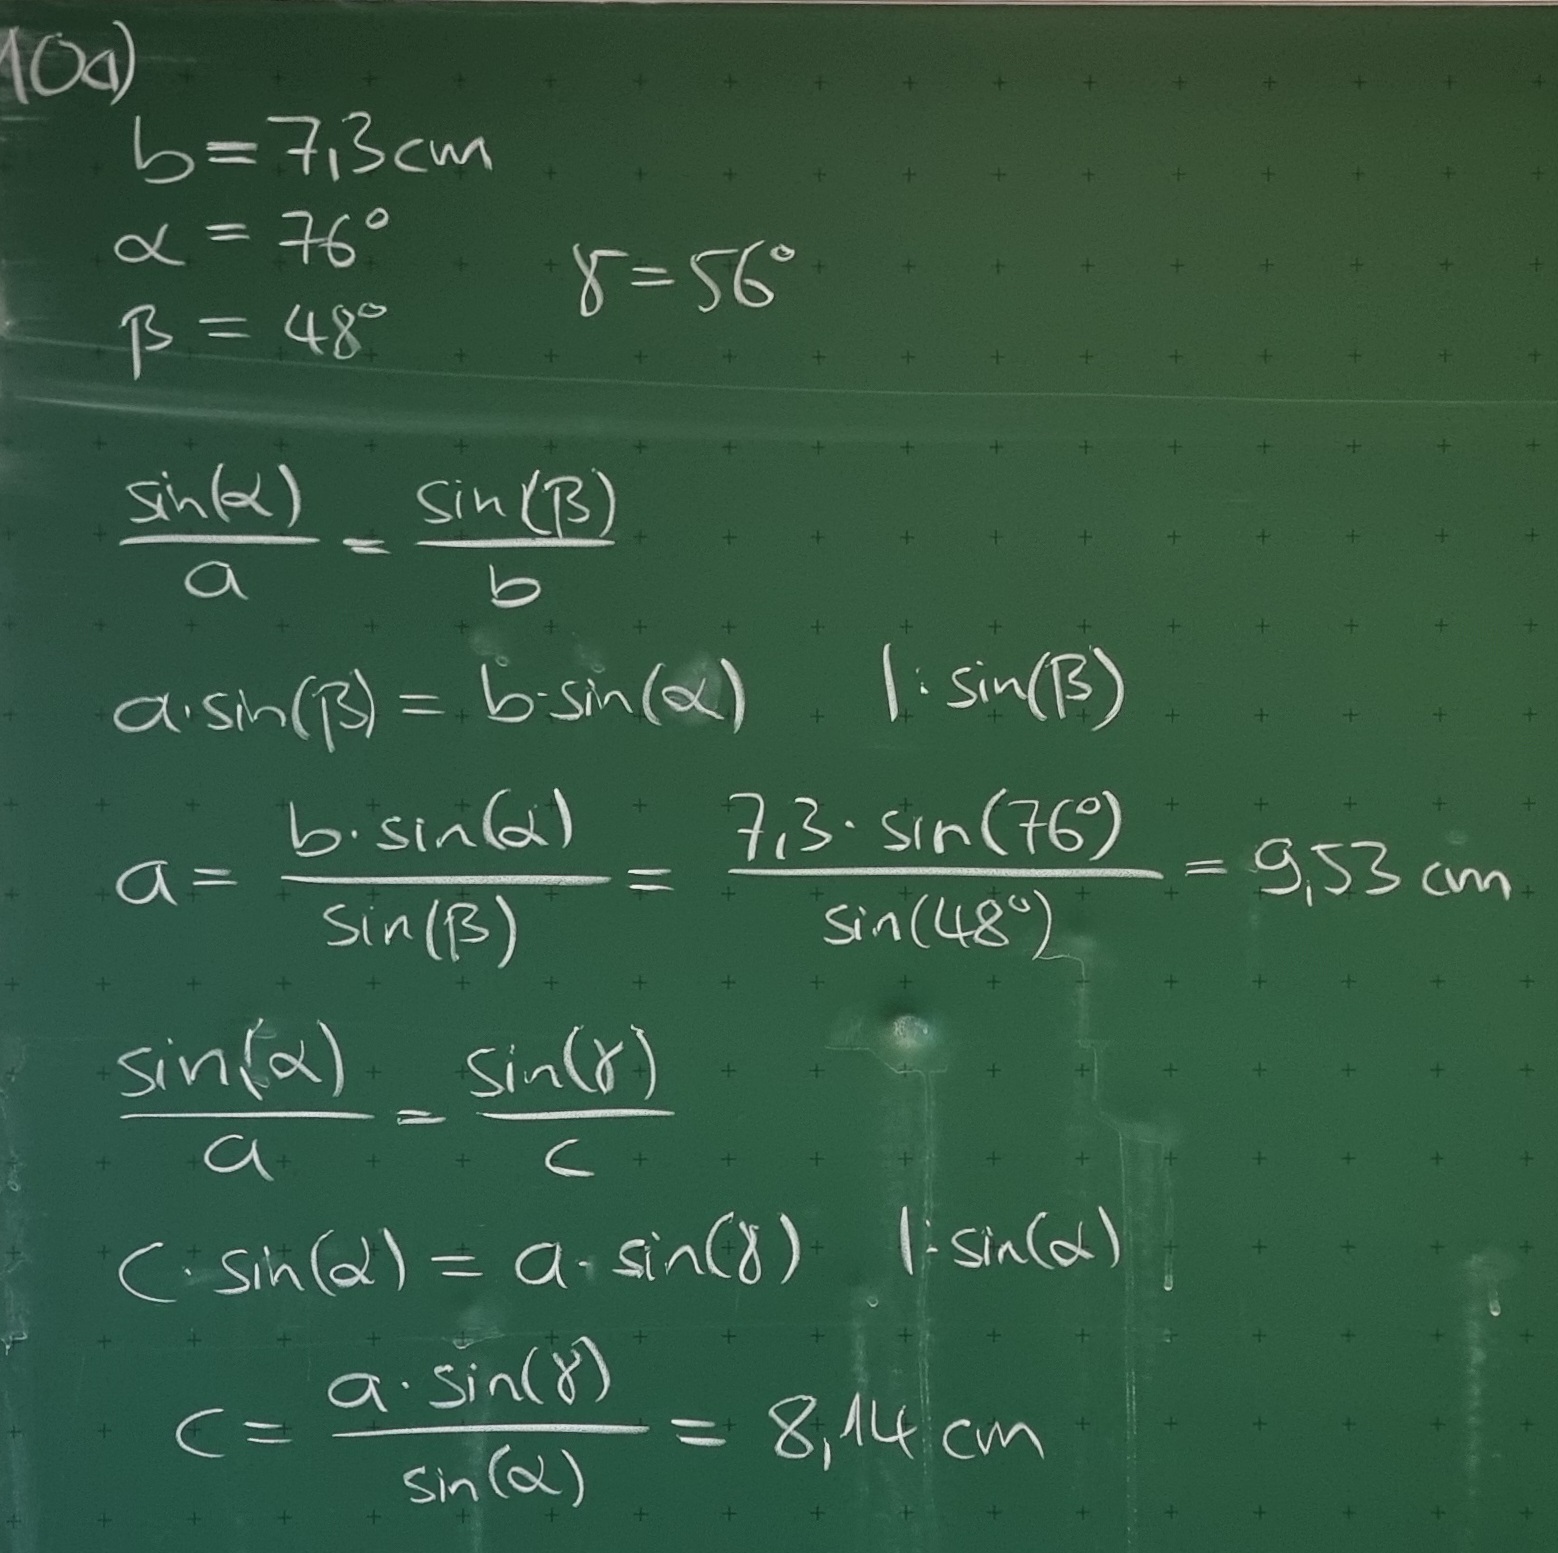 10a)
b = 7,3 cm
α = 76°
γ = 56°
β = 48°
sin(α)/a = sin(β)/b
a·sin(β) = b·sin(α) |: sin(β)
a = b·sin(α)/sin(β) = 7,3·sin(76°)/sin(48°) = 9,53 cm
sin(α)/a = sin(γ)/c
c·sin(α) = a·sin(γ) |: sin(α)
c = a·sin(γ)/sin(α) = 8,14 cm